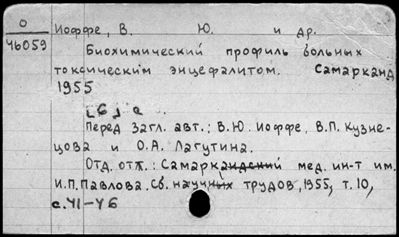 О
Ч6059
Иоффе, В. Ю. и др.
Биохимический профиль больных
токсическим энцефалитом. Самарканд
1955
[6] с.
Перед загл. авт.: В.Ю. Иоффе, В.П. Кузне-
цова и О.А. Лагутина.
Отд. отт.: Самаркандский мед. ин-т им.
И.П. Павлова. Сб. научных трудов, 1955, т. 10,
с. 41-46